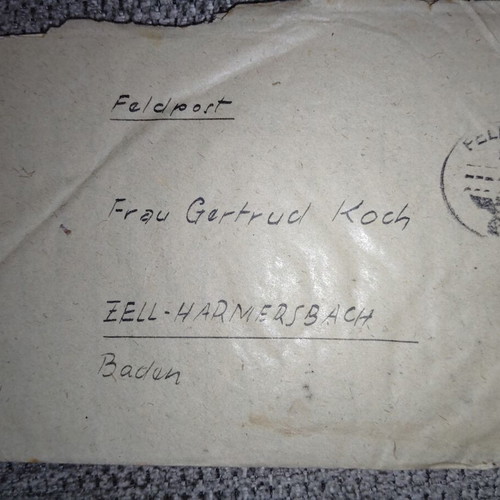 Feldpost
Frau Gertrud Koch
ZELL-HARMERSBACH
Baden